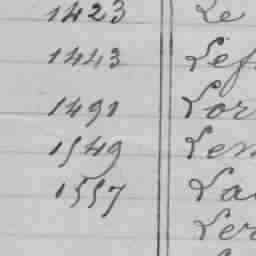 1423 Le
1443 Lef
1491 Lor
1549 Lem
1557 La
Ler